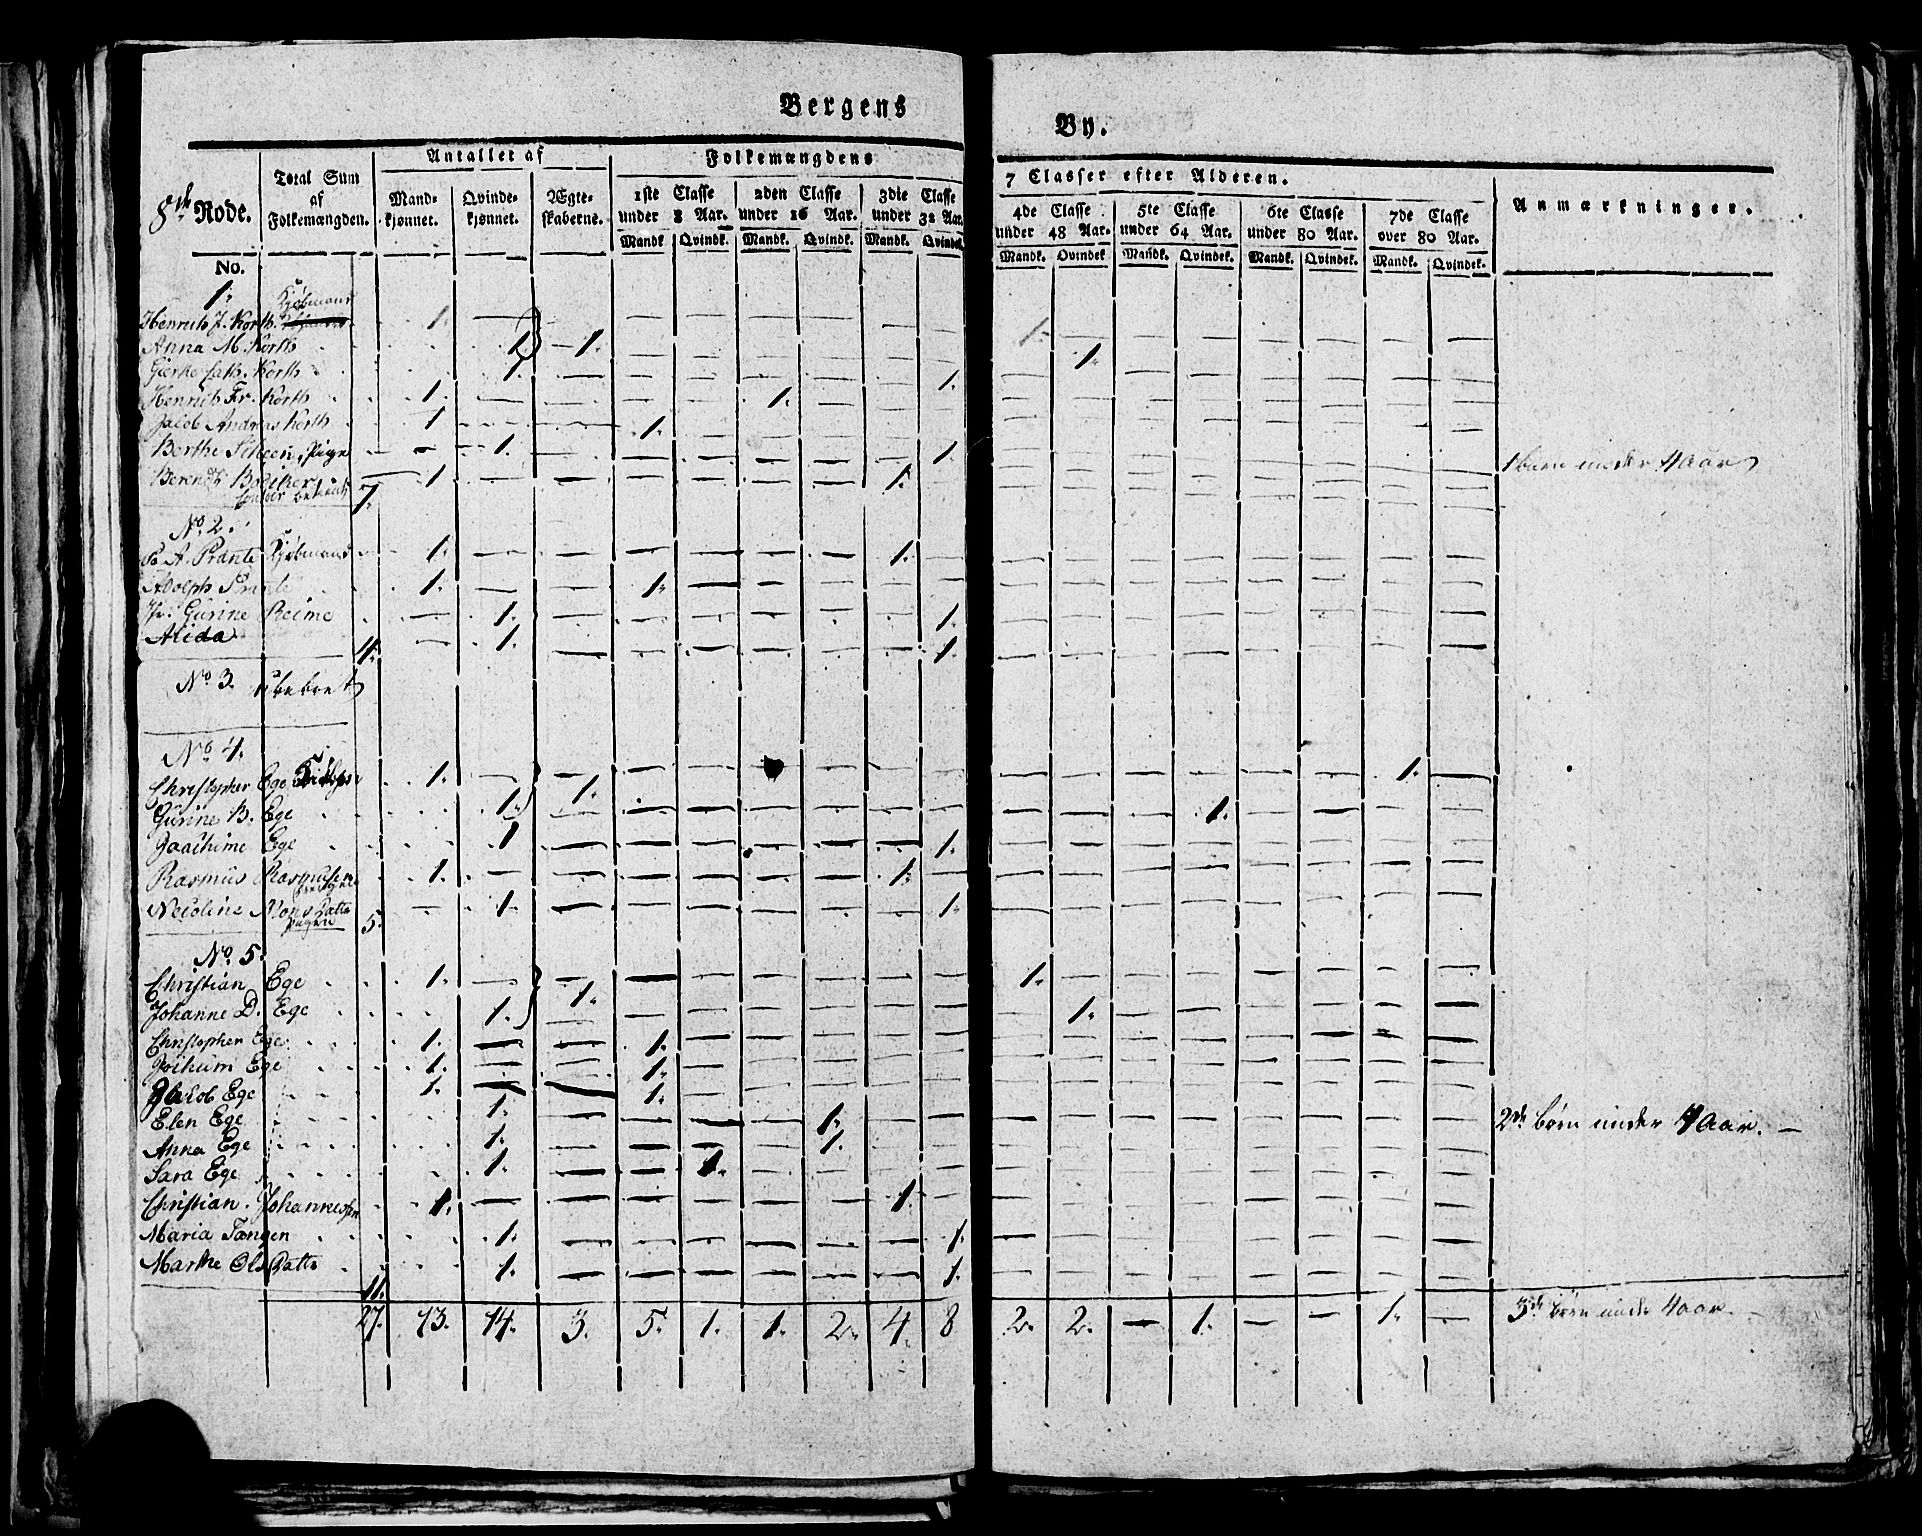 Bergens By.
8de Rode.
Total Sum af Folkemængden.
Antallet af
Mandkjønnet.
Qvindekjønnet.
Ægteskaberne.
Folkemængdens 7 Classer efter Alderen.
1ste Classe under 8 Aar.
2den Classe under 16 Aar.
3die Classe under 32 Aar.
4de Classe under 48 Aar.
5te Classe under 64 Aar.
6te Classe under 80 Aar.
7de Classe over 80 Aar.
Anmærkninger.
Mandk. Qvindk. Mandk. Qvindk. Mandk. Qvindek. Mandk. Qvindek. Mandk. Qvindek. Mandk. Qvindek. Mandk. Qvindek.
No.
1. Kjøbmand
Henrich J. Korth. 1. 1.
Anna M. Korth 1. 1. 1.
Gjerke Cath. Korth 1. 1.
Henrich Fr. Korth 1. 1.
Jacob Andreas Korth 1 1.
Berthe Scheen, Pige 1. 1.
Berendt Bødtker 1. 1. 1 børn under 4 aar
7.
No. 2.
A. Prante Kjøbmand 1. 1.
Adolph Prante 1. 1.
Gurine Reime 1. 1.
Alida 1. 1.
4.
No. 3. ubeboet
No. 4.
Christopher Ege 1. 1. 1.
Gurine B. Ege 1. 1.
Joachime Ege 1 1.
Rasmus Rasmusen 1. 1.
Necoline Mons Datter 1. 1.
Pigen 5.
No. 5.
Christian Ege 1. 1. 1.
Johanne D. Ege 1. 1.
Christopher Ege 1. 1.
Jochum Ege 1. 1.
Jacob Ege 1. 1.
Elen Ege 1. 1. 2de børn under 4 aar.
Anna Ege 1. 1.
Sara Ege 1. 1.
Christian Johannessen 1. 1.
Maria Tangen 1. 1.
Marthe Ols Datter 1. 1.
11.
27. 13. 14. 3. 5. 1. 1. 2. 4. 8 2. 2. — 1. — — 1. — 3de børn under 4 aar.